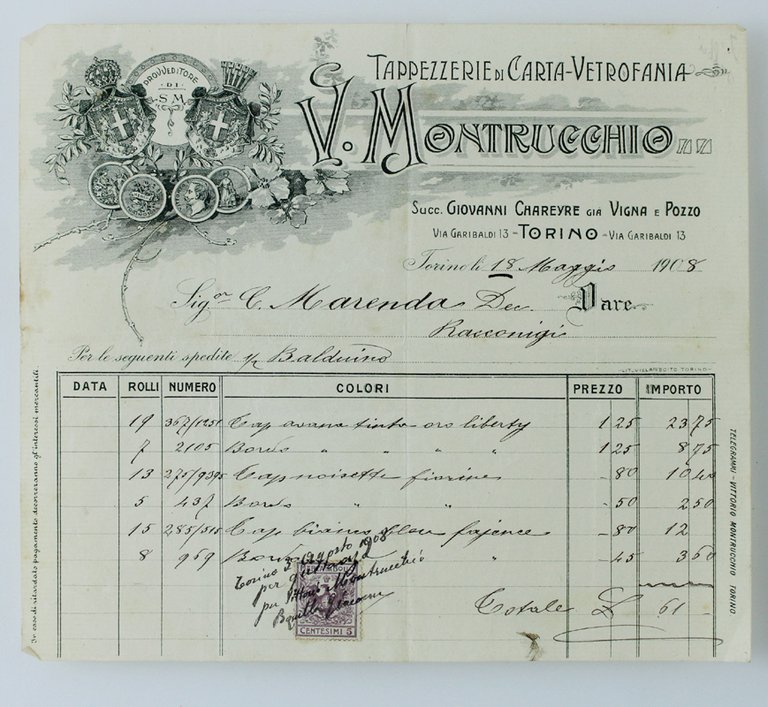 PROVVEDITORE
DI
S.M.
TAPPEZZERIE DI CARTA-VETROFANIA
V. MONTRUCCHIO
SUCC. GIOVANNI CHAREYRE GIÀ VIGNA E POZZO
VIA GARIBALDI 13 - TORINO - VIA GARIBALDI 13
Torino li 18 Maggio 1908
Sig.or C. Marenda Dec. Dare
Racconigi
Per le seguenti spedite Balduino
LIT. VILLARBOITO TORINO
DATA ROLLI NUMERO COLORI PREZZO IMPORTO
19 367/1251 Tap avana tinta oro liberty 1 25 23 75
7 2105 Bords " " " 1 25 8 75
13 275/9395 Tap noisette fiorine - 80 10 40
5 437 Bords " " " - 50 2 50
15 285/515 Tap bianco bleu fajence - 80 12
8 959 - 45 3 60
Torino 3 Agosto 1908
per
per Vittorio Montrucchio
Giacomo
CENTESIMI 5
Totale £ 61 -
In caso di ritardato pagamento decorreranno gl'interessi mercantili.
TELEGRAMMI - VITTORIO MONTRUCCHIO TORINO